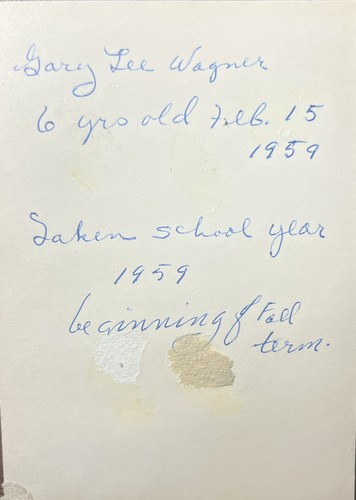 Gary Lee Wagner
6 yrs old Feb. 15
1959
Taken school year
1959
beginning of Fall
term.